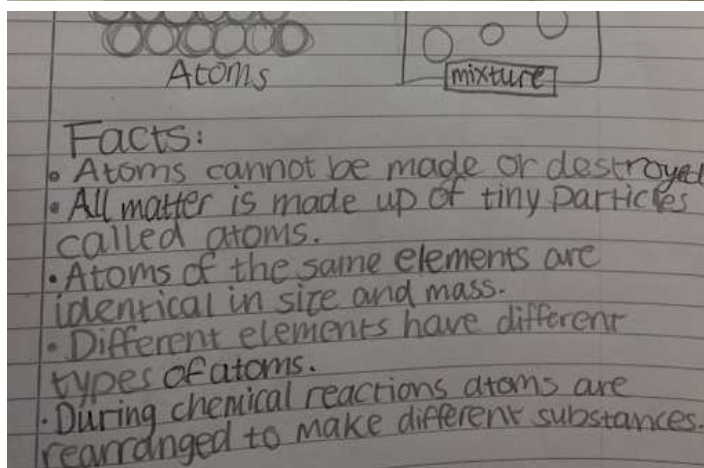 Atoms
mixture
Facts:
• Atoms cannot be made or destroyed
• All matter is made up of tiny particles
called atoms.
• Atoms of the same elements are
identical in size and mass.
• Different elements have different
types of atoms.
• During chemical reactions atoms are
rearranged to make different substances.